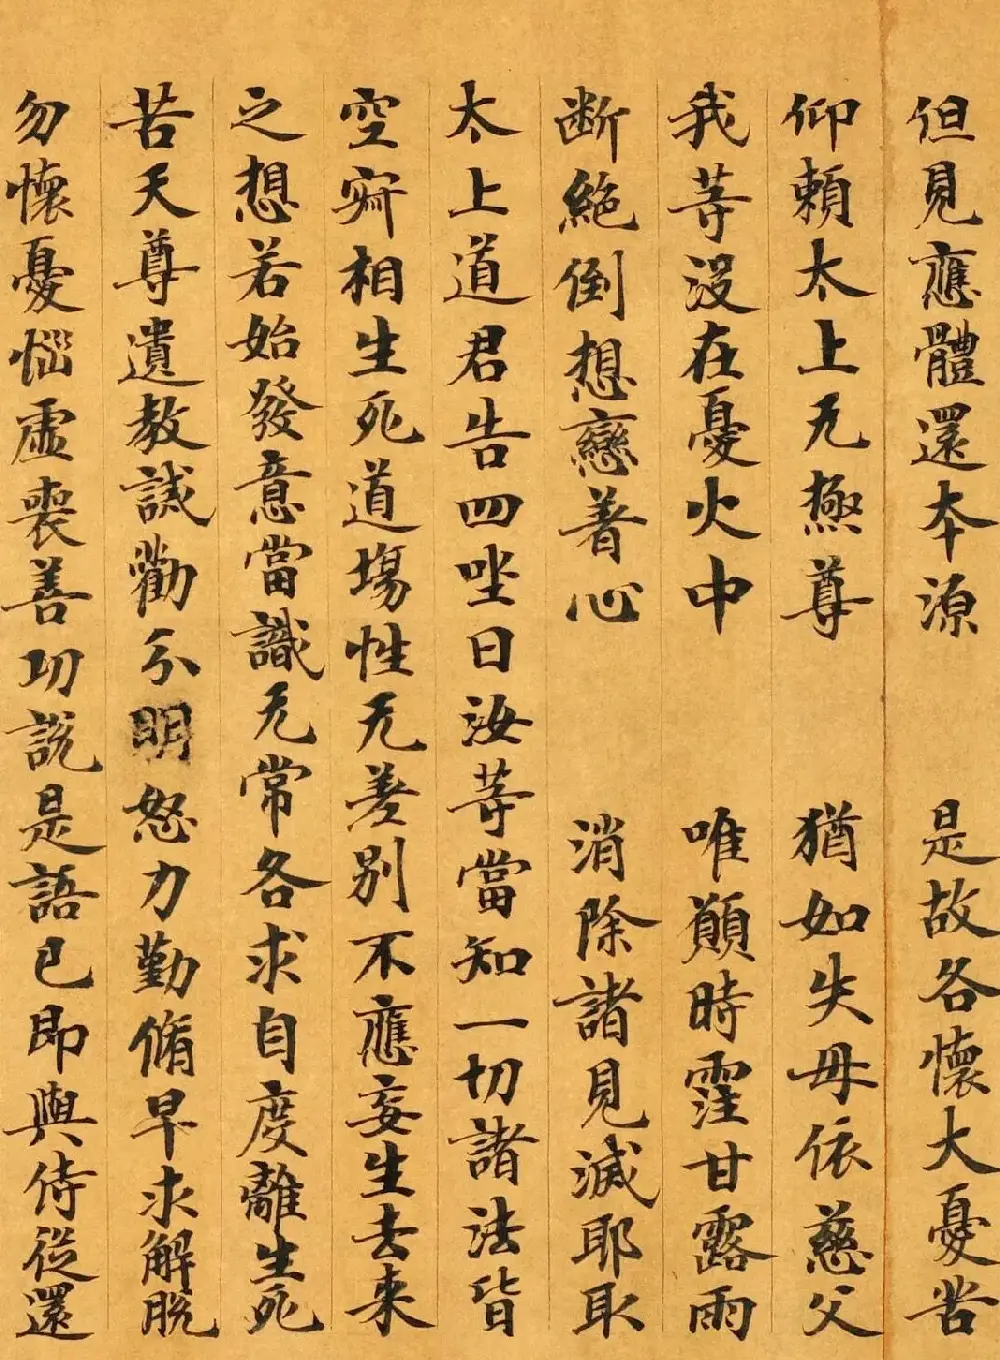 但見應體還本源　是故各懷大憂苦
仰賴太上无極尊　猶如失母依慈父
我等没在憂火中　唯願時霔甘露雨
断絶倒想戀著心　消除諸見滅耶取
太上道君告四坐曰汝等當知一切諸法皆
空寂相生死道場性无差別不應妄生去来
之想若始發意當識无常各求自度離生死
苦天尊遺教誡勸分明怒力勤脩早求解脱
勿懷憂惱虛喪善功説是語已即與侍從還